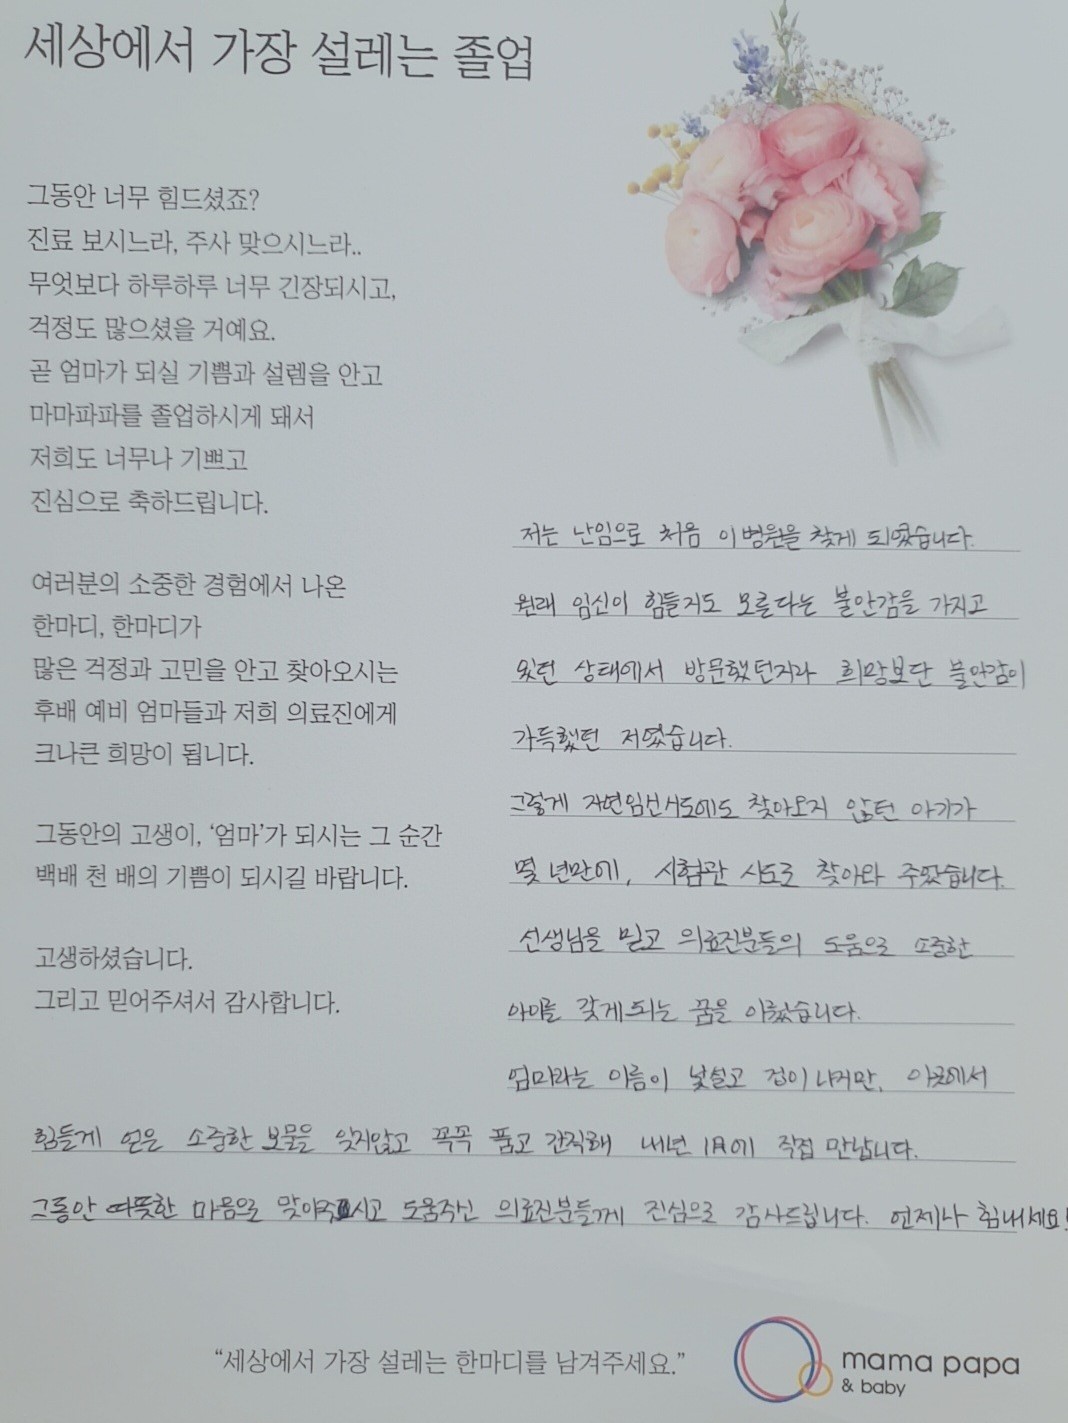 세상에서 가장 설레는 졸업
그동안 너무 힘드셨죠?
진료 보시느라, 주사 맞으시느라..
무엇보다 하루하루 너무 긴장되시고,
걱정도 많으셨을 거예요.
곧 엄마가 되실 기쁨과 설렘을 안고
마마파파를 졸업하시게 돼서
저희도 너무나 기쁘고
진심으로 축하드립니다.
여러분의 소중한 경험에서 나온
한마디, 한마디가
많은 걱정과 고민을 안고 찾아오시는
후배 예비 엄마들과 저희 의료진에게
크나큰 희망이 됩니다.
그동안의 고생이, '엄마'가 되시는 그 순간
백배 천 배의 기쁨이 되시길 바랍니다.
고생하셨습니다.
그리고 믿어주셔서 감사합니다.
저는 난임으로 처음 이 병원을 찾게 되였습니다.
원래 임신이 힘들지도 모른다는 불안감을 가지고
있던 상태에서 방문했던지라 희망보단 불안감이
가득했던 저였습니다.
그렇게 자연임신시도에도 찾아오지 않던 아기가
몇 년만에, 시험관 시도로 찾아와 주었습니다.
선생님을 믿고 의료진분들의 도움으로 소중한
아이를 갖게되는 꿈을 이뤘습니다.
엄마라는 이름이 낯설고 겁이 나지만, 이곳에서
힘들게 얻은 소중한 보물을 잊지않고 꼭꼭 품고 간직해 내년 1月에 직접 만납니다.
그동안 따뜻한 마음으로 맞아주시고 도움주신 의료진분들께 진심으로 감사드립니다. 언제나 힘내세요!
"세상에서 가장 설레는 한마디를 남겨주세요."
mama papa
& baby